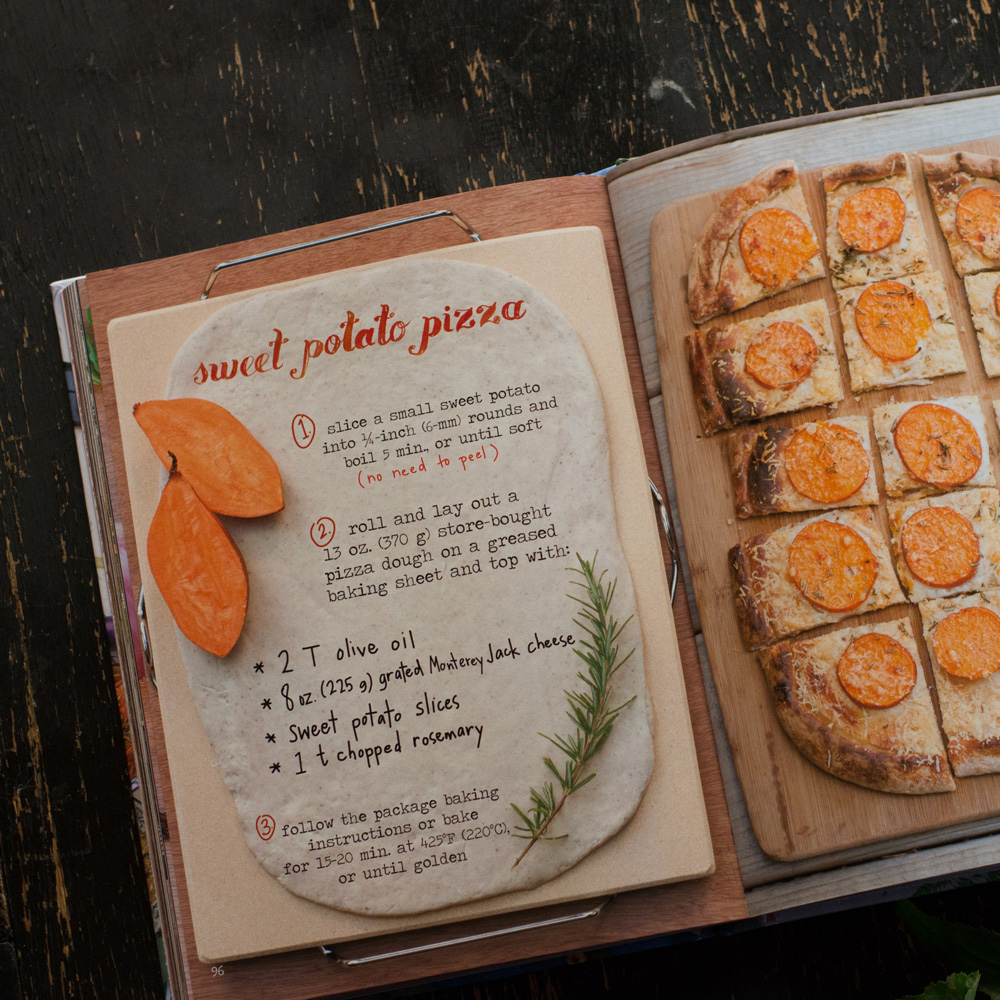 sweet potato pizza
1. slice a small sweet potato
into ¼-inch (6-mm) rounds and
boil 5 min, or until soft
(no need to peel)
2. roll and lay out a
13 oz. (370 g) store-bought
pizza dough on a greased
baking sheet and top with:
* 2 T olive oil
* 8 oz. (225 g) grated Monterey Jack cheese
* sweet potato slices
* 1 t chopped rosemary
3. follow the package baking
instructions or bake
for 15-20 min. at 425°F (220°C),
or until golden
96